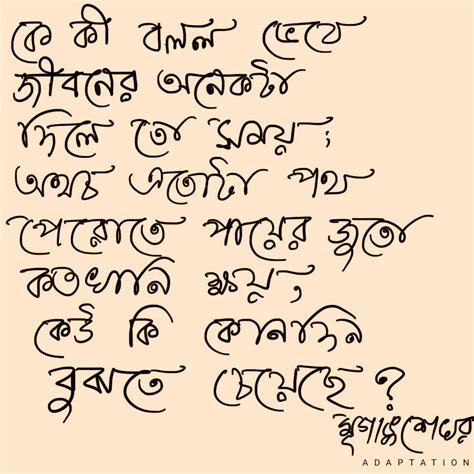 কে কী বলল ভেবে
জীবনের অনেকটা
দিলে তো সময়;
অথচ এতোটা পথ
পেরোতে পায়ের জুতো
কতখানি ক্ষয়;
কেউ কি কোনদিন
বুঝতে চেয়েছে ?
মৃগাঙ্কশেখর
ADAPTATION